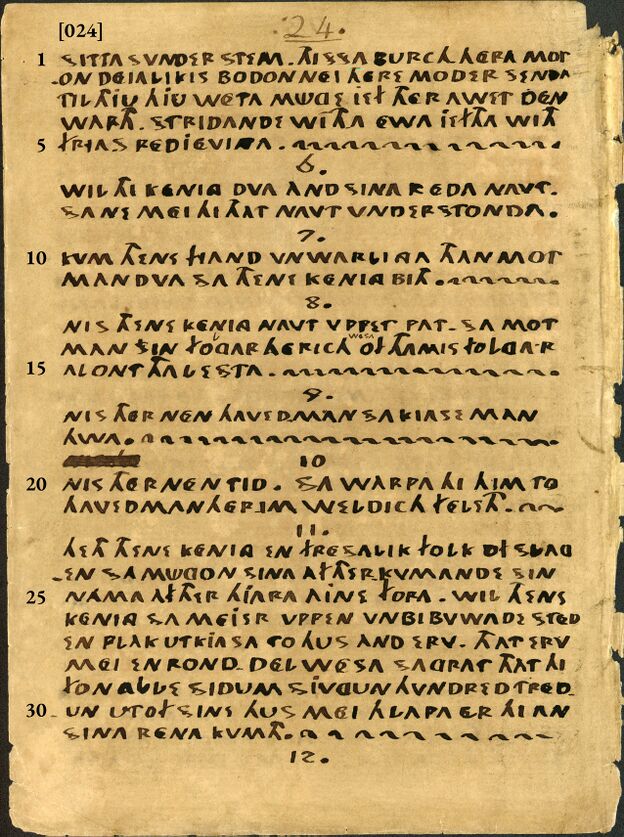 [024]
24.
1 SITTA SVNDER STEM. THISSA BURCH HERA MOT
ON DEIALIKIS BODON NEI HERE MODER SENDA
TIL THIU HIU WETA MUGE JEF THER AWET DEN
WARTH. STRIDANDE WITHA EWA JEFTHA WITH
5 FRJAS REDJEVINGA.
6.
WIL THI KENING DVA AND SINA REDA NAVT.
SA NE MEI HI THAT NAVT VNDERSTONDA.
7.
10 KVM THENE FJAND VNWARLINGA THAN MOT
MAN DVA SA THENE KENING BITH.
8.
NIS THENE KENING NAVT VPPET PAT. SA MOT
MAN SIN FOLGAR HERICH WESA OF THAM IS FOLGA-R
15 ALONT THA LESTA.
9.
NIS THER NEN HAVEDMAN SA KIASE MAN
HWA.
10
20 NIS THER NEN TID. SA WARPA HI HIM TO
HAVEDMAN HERIM WELDICH FELETH.
11.
HETH THENE KENING EN FRESALIK FOLK OFSLAG
EN SA MUGON SINA AFTERKVMANDE SIN
25 NAMA AFTER HJARA AJNE FORA. WIL THENE
KENING SA MEI ER VPPEN VNBIBUWADE STED
EN PLAK UTKIASA TO HUS AND ERV. THAT ERV
MEI EN ROND-DEL WESA SA GRAT THAT HI
FON ALLE SIDUM SJVGUN HVNDRED TRED
30 UN UTOF SINE HUS MEI HLAPA ER HI AN
SINA RENA KVMTH.
12.